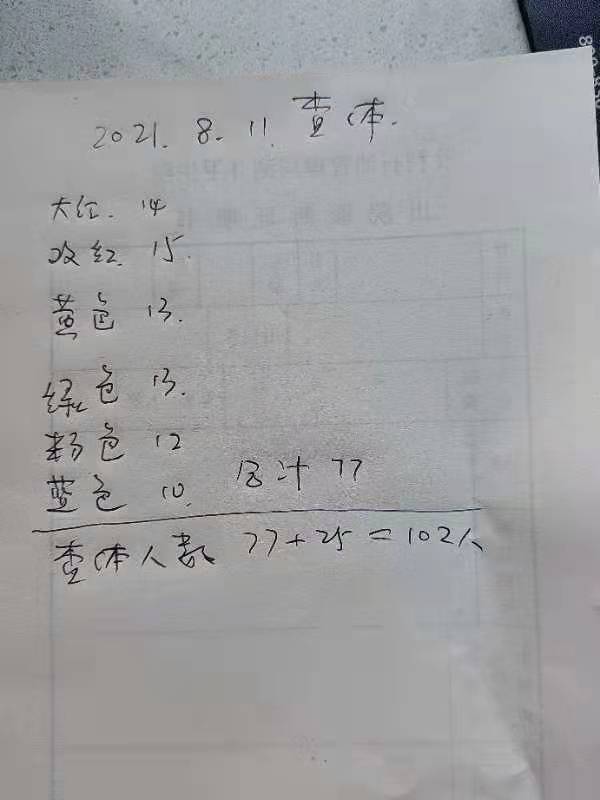 2021. 8. 11. 查体.
大红. 14
玫红. 15.
黄色 13.
绿色 13.
粉色 12
蓝色 10. 合计 77
查体人数 77+25=102人